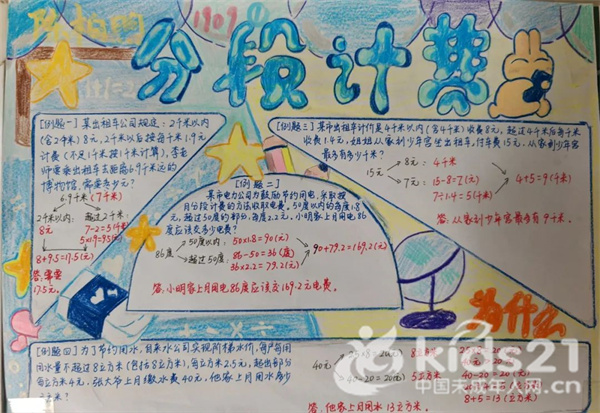 1909
分段计费
1+1=2
【例题一】某出租车公司规定:2千米以内
(含2千米)8元,2千米以后按每千米1.9元
计费(不足1千米按1千米计算),李老
师乘坐出租车去距离6.9千米远的
博物馆,需要多少元?
6.9千米(7千米)
2千米以内: 超过2千米:
8元 7-2=5(千米)
5×1.9=9.5(元)
8+9.5=17.5(元)
答:需要
17.5元。
【例题二】
某市电力公司为鼓励节约用电,采取按
月分段计费的方法收取电费。50度以内的每度1.8
元,超过50度的部分,每度2.2元。小明家上月用电86
度应该交多少电费?
86度
50度以内:50×1.8=90(元)
超过50度:86-50=36(度)
36×2.2=79.2(元)
90+79.2=169.2(元)
答:小明家上月用电86度应该交169.2元电费。
【例题三】某市出租车计价是4千米以内(含4千米)收费8元,超过4千米后每千米
收费1.4元,姐姐从家到少年宫坐出租车,付车费15元。从家到少年宫
最多有多少千米?
15元
8元:4千米
7元:15-8=7(元)
7÷1.4=5(千米)
4+5=9(千米)
答:从家到少年宫最多有9千米。
为什么
【例题四】为了节约用水,自来水公司实现阶梯水价,每户每月
用水量不超过8立方米(包括8立方米),每立方米2.5元,超出部分
每立方米4元。张大爷上月缴水费40元,他家上月用水多少
立方米?
40元
8立方米
5立方米
40-20=20(元)
8+5=13(立方米)
答:他家上月用水13立方米。
kids21
中国未成年人网.cn